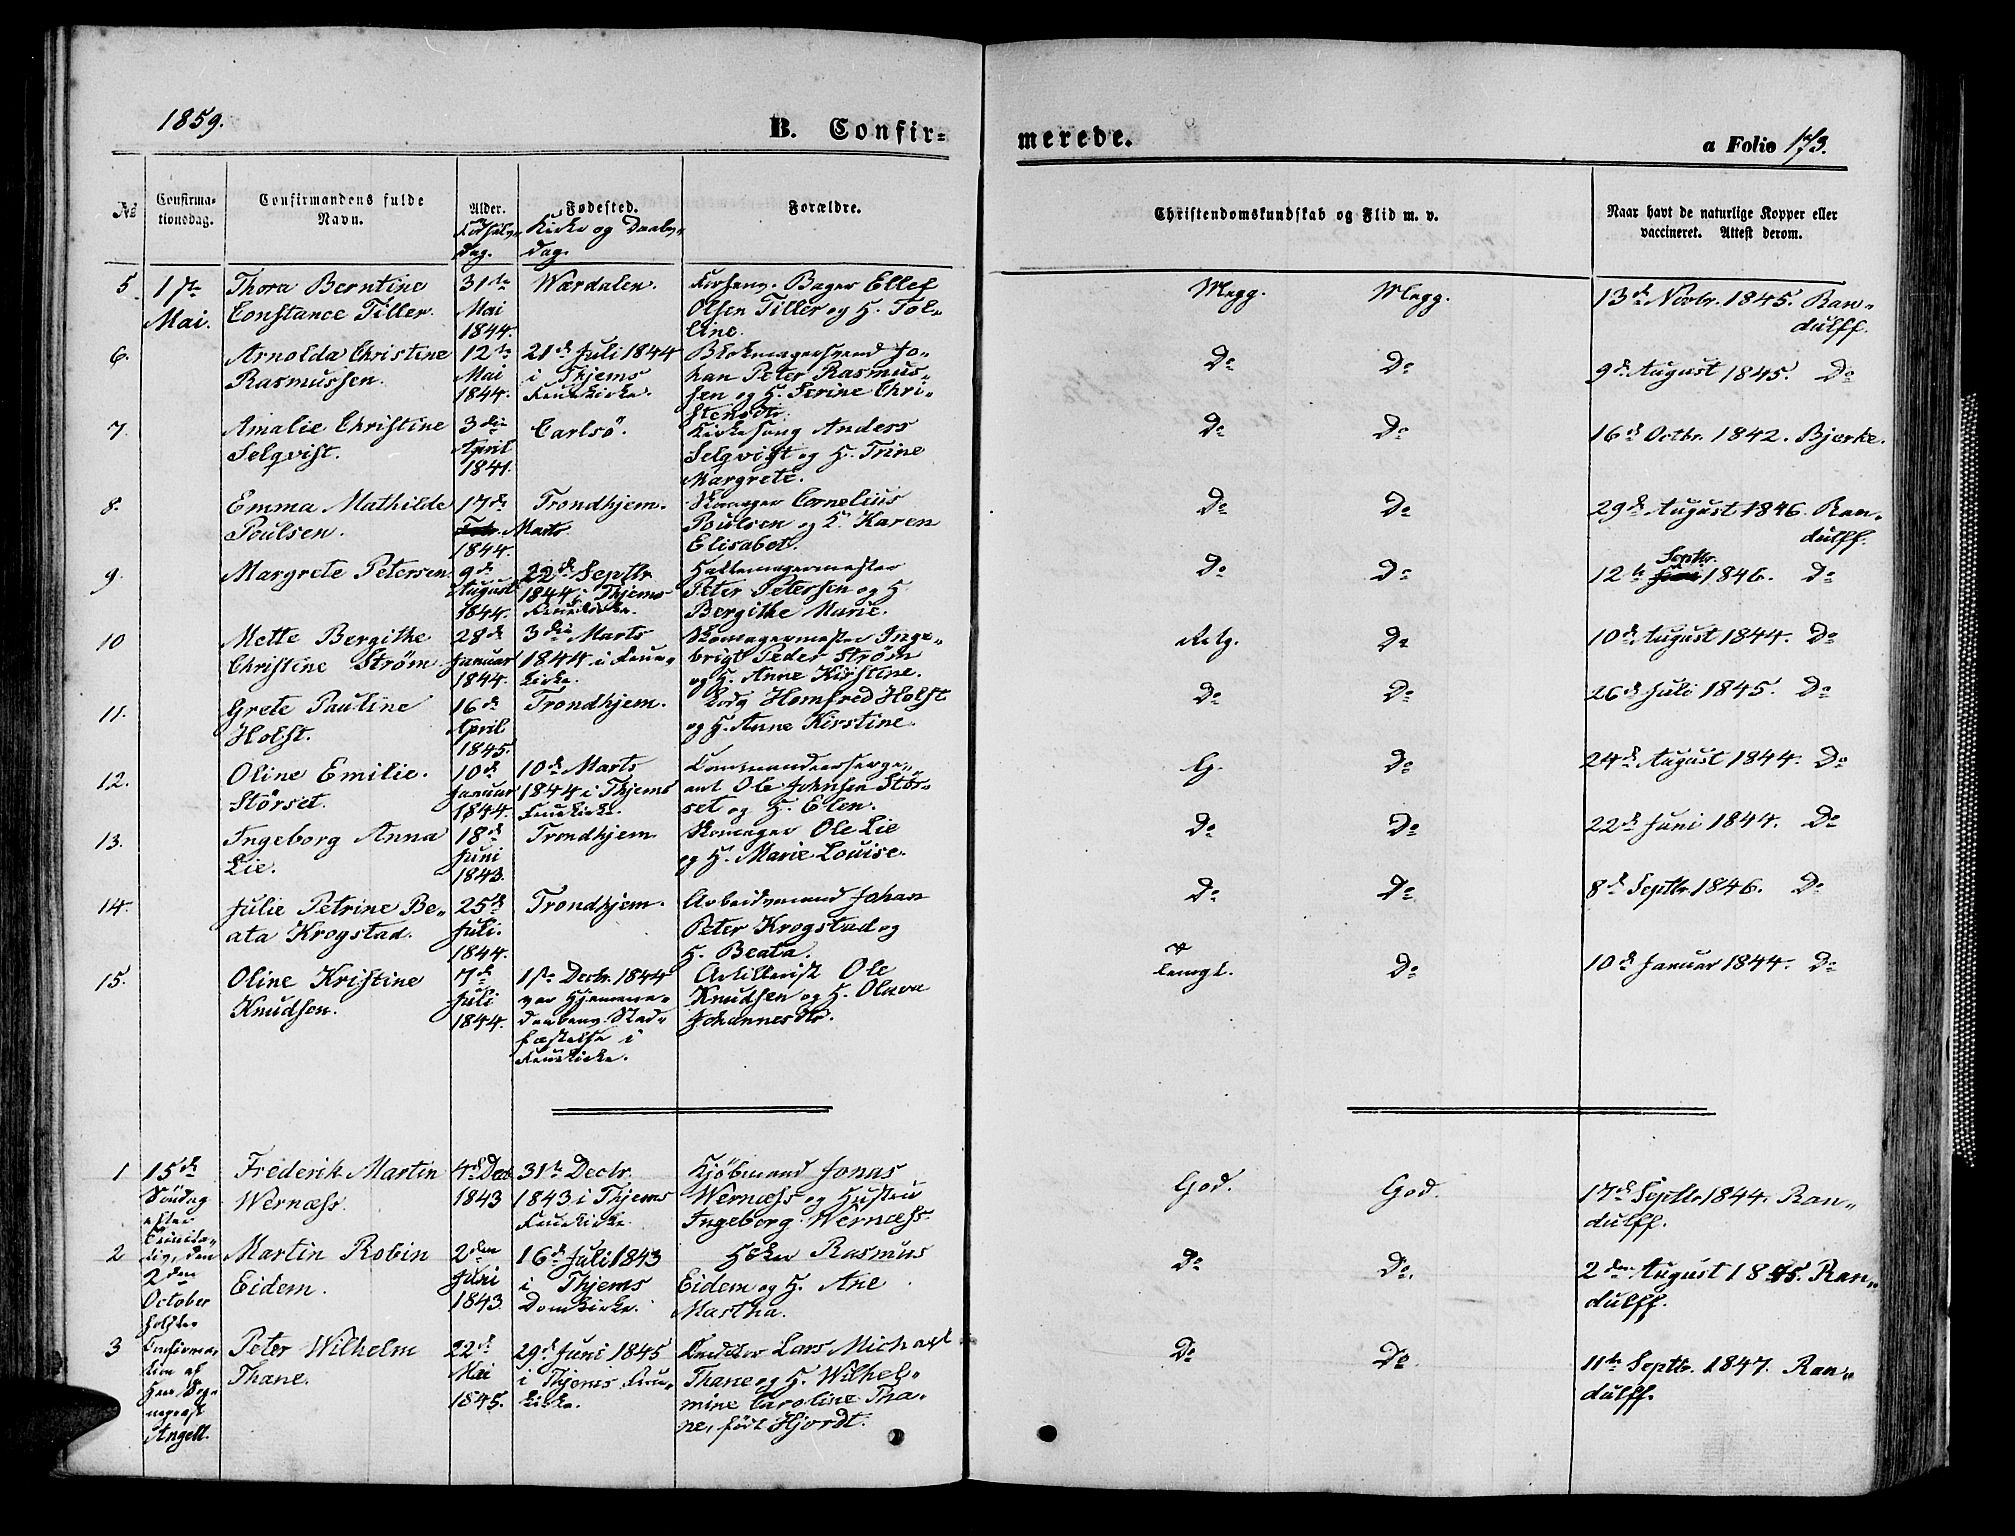 1859.
B. Confir-
merede.
a Folio 173.
№
Confirma-
tionsdag.
Confirmandens fulde
Navn.
Alder.
Fødselsdag.
Fødested.
Kirke og Daabs-
dag.
Forældre.
Christendomskundskab og Flid m. v.
Naar havt de naturlige Kopper eller
vaccineret. Attest derom.
5.
1ste
Mai.
Thora Berntine
Constance Tiller.
31te
Mai
1844.
Wærdalen.
Forhenv. Bager Ellef
Olsen Tiller og H. Tol-
line.
Megg.
Megg.
13de Novbr. 1845. Ran-
dulff.
6.
Arnolda Christine
Rasmussen.
12te
Mai
1844.
21de Juli 1844
i Thjems
Fruekirke.
Blokmagersvend Jo-
han Peter Rasmus-
sen og H. Serine Chri-
stensdtr.
Do
Do
9de August 1845. Do
7.
Amalie Christine
Selqvist.
3die
April
1841.
Carlsö.
Kirkesang Anders
Selqvist og H. Trine
Margrete.
Do
Do
16de Octbr. 1842. Bjerke.
8.
Emma Mathilde
Poulsen.
17de
Marts
1844.
Trondhjem.
Skomager Cornelius
Poulsen og H. Karen
Elisabet.
Do
Do
29de August 1846. Ran-
dulff.
9.
Margrete Petersen
9de
August
1844.
22de Septbr
1844 i Thjems
Fruekirke.
Hattemagermester
Peter Petersen og H
Bergithe Marie.
Do
Do
12te Septbr. 1846. Do
10
Mette Bergithe
Christine Strøm
28de
Januar
1844.
3die Marts
1844 i Frue-
kirke.
Skomagermester Inge-
brigt Peder Strøm
og H. Anne Kirstine.
Do
10de August 1844. Do
11.
Grete Pauline
Holst.
16de
April
1845.
Trondhjem.
Homfred Holst
og H. Anne Kirstine
Do
Do
26de Juli 1845. Do
12.
Oline Emilie.
Störset.
10de
Januar
1844.
10de Marts
1844 i Thjems
Fruekirke.
Commandeerserge-
ant Ole Johnsen Stör-
set og H. Elen.
G.
Do
24de August 1844. Do
13.
Ingeborg Anna
Lie.
18de
Juni
1843.
Trondhjem
Skomager Ole Lie
og H. Marie Louise.
Do
Do
22de Juni 1844. Do
14.
Julie Petrine Be-
ata Krogstad.
25de
Juli.
1844.
Trondhjem.
Arbeidsmand Johan
Peter Krogstad og
H. Beata.
Do
Do
8de Septbr 1846. Do
15.
Oline Kristine
Knudsen.
7de
Juli
1844.
1ste Decbr. 1844
var Hjemme-
daabens Stad-
fæstelse i
Fruekirke.
Artillerist Ole
Knudsen og H. Olava
Johannesdtr.
Do
10de Januar 1844. Do
1
15de
Söndag
efter
Trinita-
tis, den
2den
October
holdtes
Confirma-
tion af
Hr. Sog-
neprest
Angell.
Frederik Martin
Wernæss.
4de Dec
1843
31te Decbr.
1843 i Thjems
Fruekirke.
Kjöbmand Jonas
Wernæss og Hustru
Ingeborg Wernæss
God.
God.
17de Septbr 1844. Ran-
dulff.
2
Martin Robin
Eidem.
2den
Juni
1843.
16de Juli 1843
i Thjems
Domkirke.
Höker Rasmus
Eidem og H. Ane
Martha.
Do
Do.
2den August 1845. Ran-
dulff.
3
Peter Wilhelm
Thane.
22de
Mai
1845.
29de Juni 1845
i Thjems Frue-
kirke.
Lars Michael
Thane og H. Wilhel-
mine Caroline Tha-
ne, født Hjordt.
Do
Do
11te Septbr. 1847. Ran-
dulff.